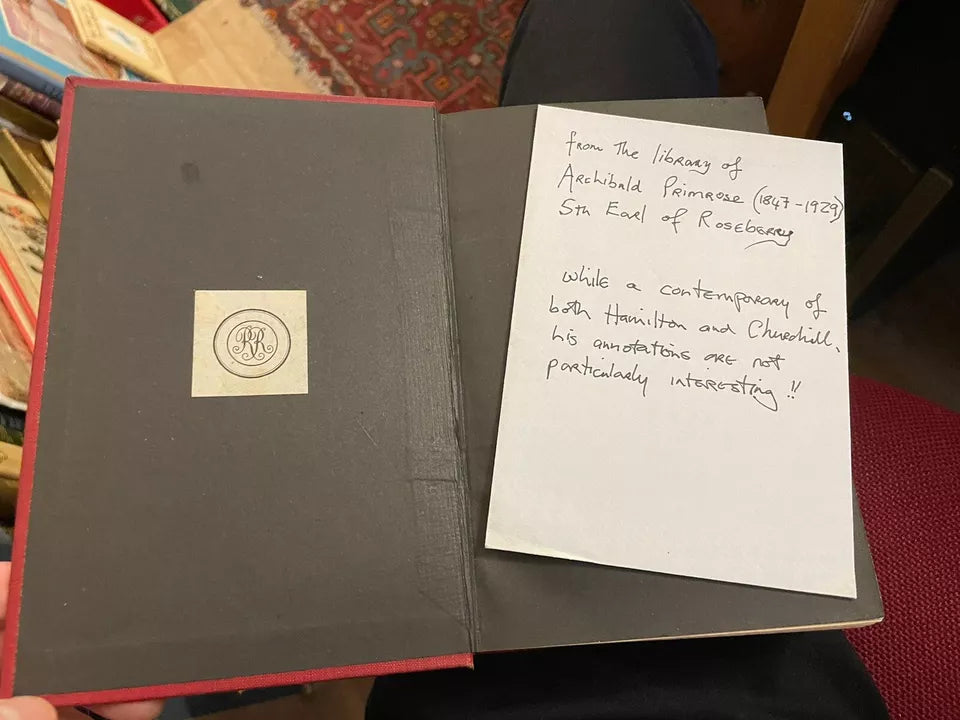 RR
from The library of
Archibald Primrose (1847-1929)
5th Earl of Roseberry
While a contemporary of
both Hamilton and Churchill,
his annotations are not
particularly interesting !!